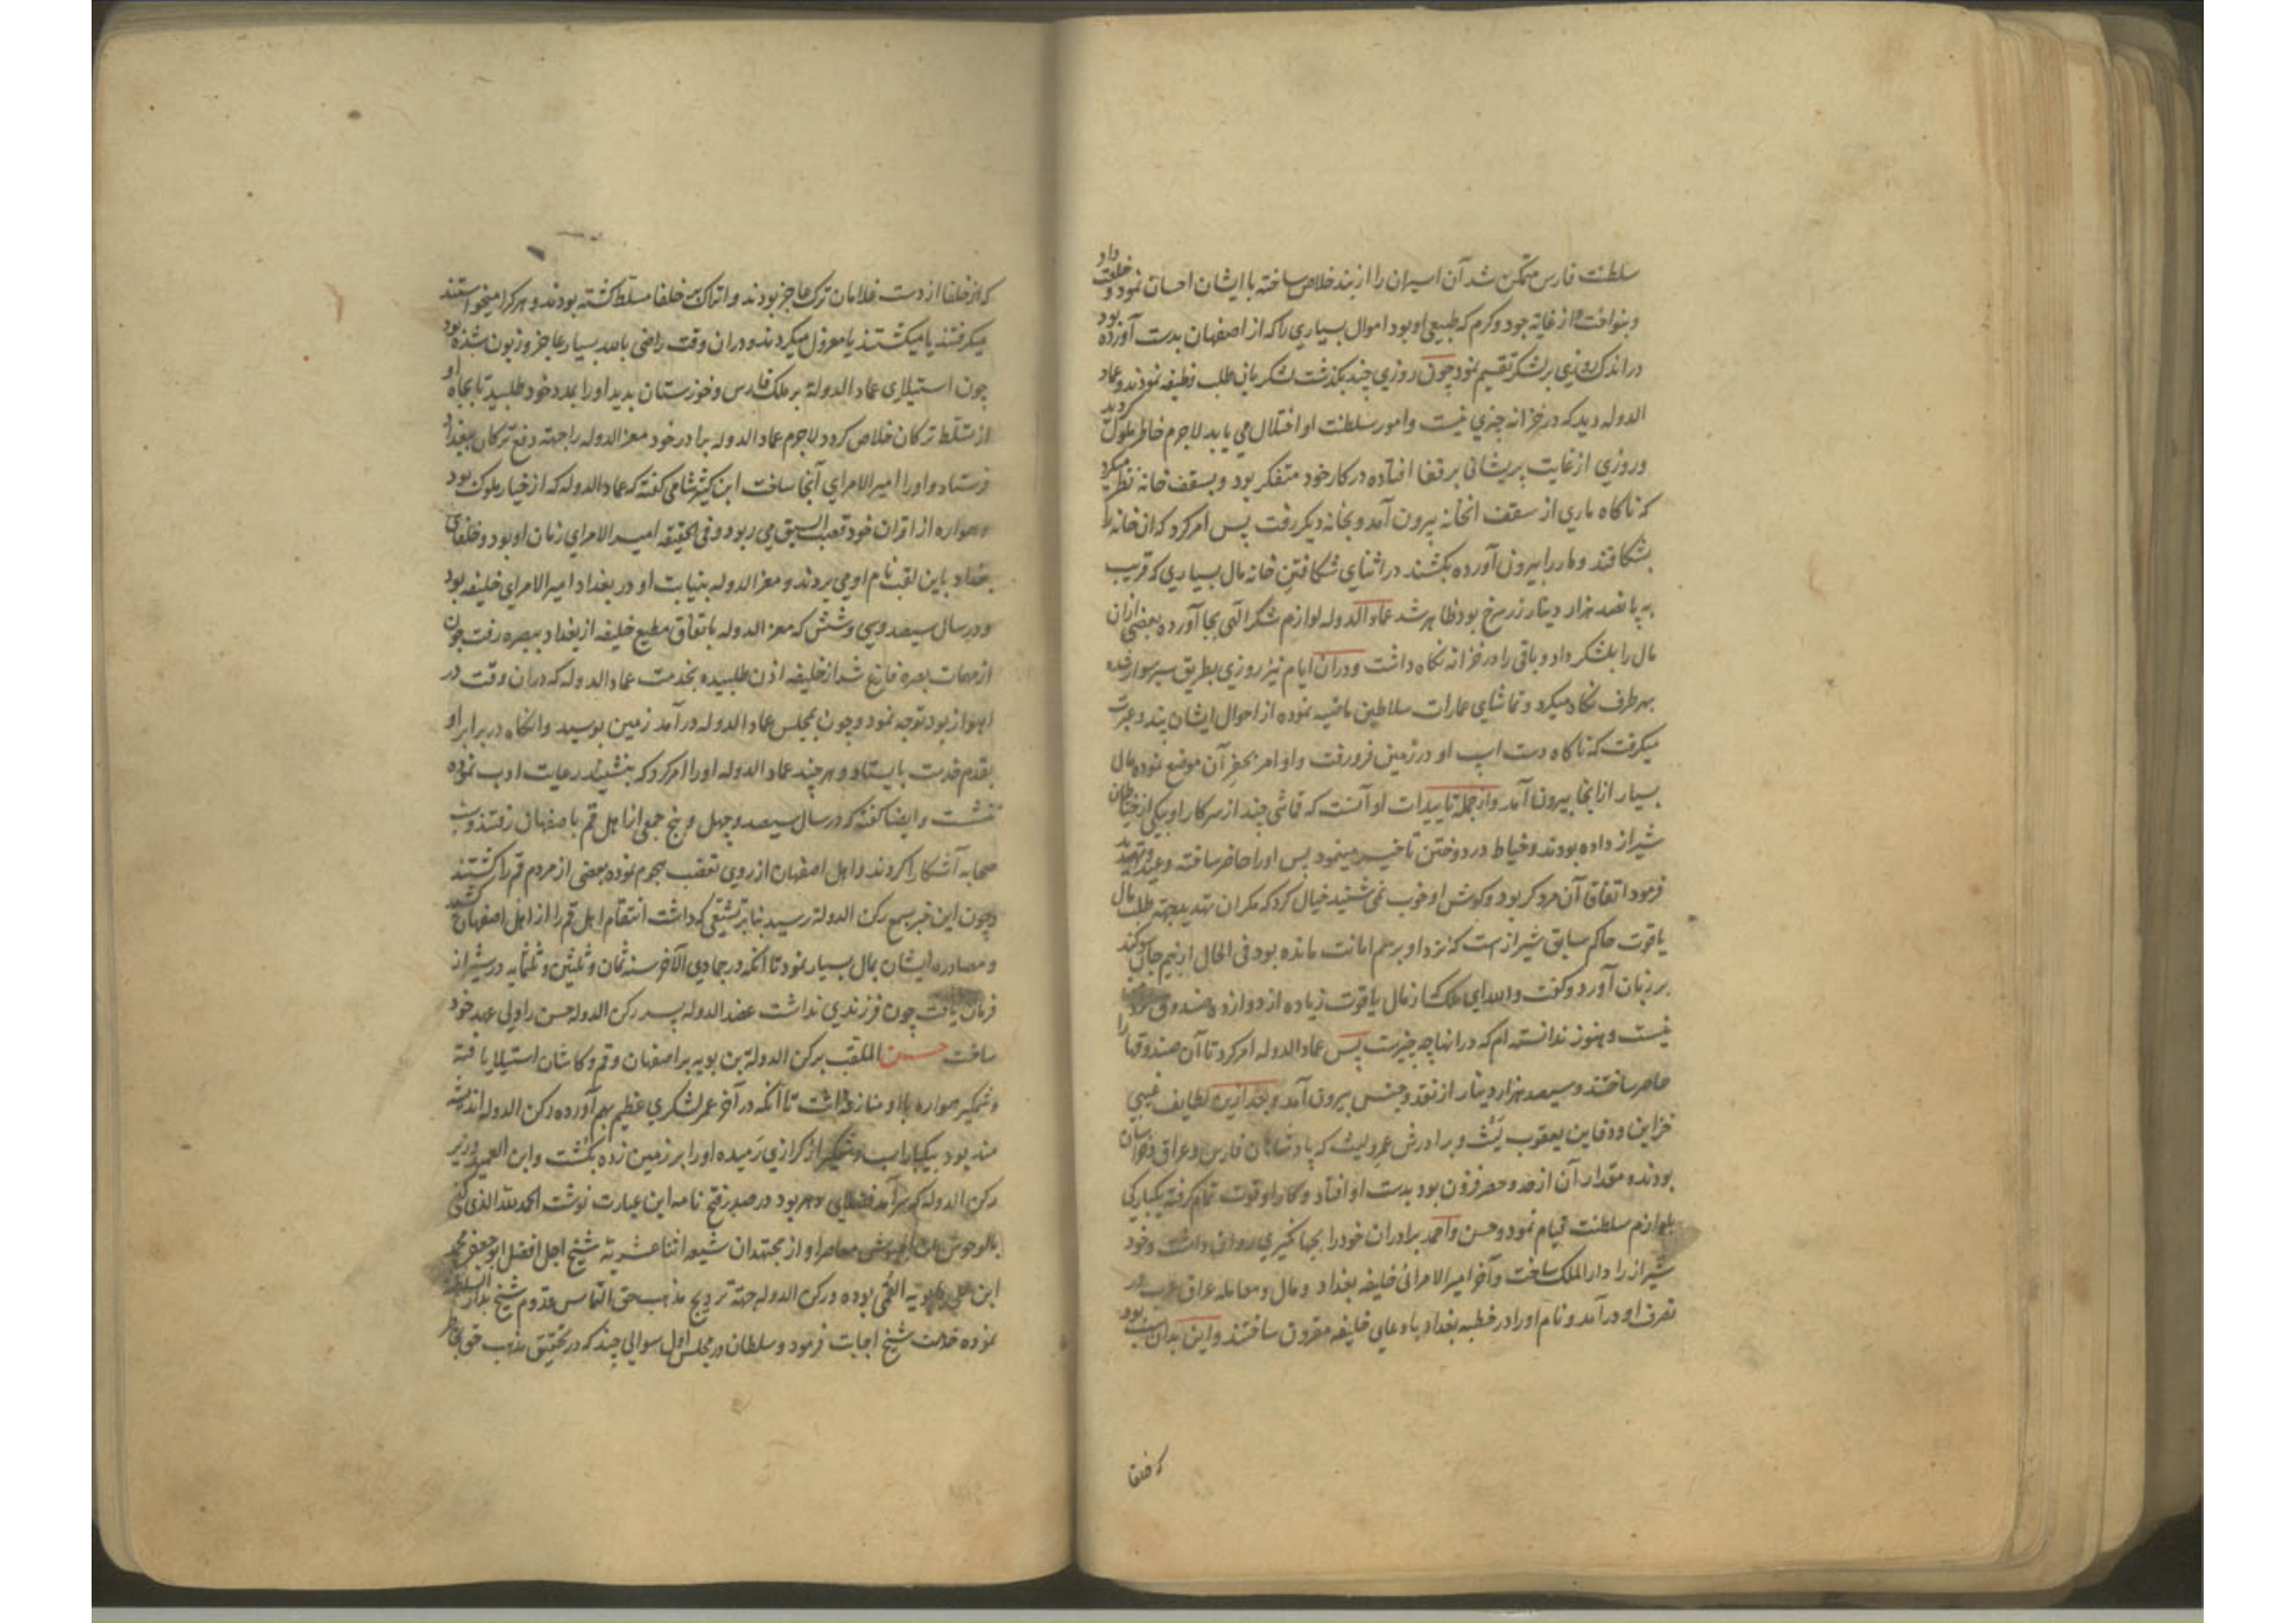 سلطنت فارس متمکن شد آن اسیران را از بند خلاص ساخته با ایشان احسان نمود و خلعت داد
و بنواخت و از غایة جود و کرم که طبیعی او بود اموال بسیاری را که از اصفهان بدست آورده بود
در اندک روزی بر لشکر تقسیم نمود چون روزی چند بکذشت لشکریان طلب وظیفه نمودند و عماد
الدوله دید که در خزانه چیزی نیست و امور سلطنت او اختلال می یابد لاجرم خاطر ملول کردید
و روزی از غایت پریشانی بر قفا افتاده در کار خود متفکر بود و بسقف خانه نظر میکرد
که ناکاه ماری از سقف انخانه بیرون آمد و بخانه دیکر رفت پس امر کرد که ان خانه را
بشکافند و مار را بیرون آورده بکشند در اثنای شکافتن خانه مال بسیاری که قریب
به پانصد هزار دینار زر سرخ بود ظاهر شد عماد الدوله لوازم شکر الهی بجا آورده بعضی ازان
مال را بلشکر داد و باقی را در خزانه نکاه داشت و دران ایام نیز روزی بطریق سیر سوار شده
بهر طرف نکاه میکرد و تماشای عمارات سلاطین ماضیه نموده از احوال ایشان پند و عبرت
میکرفت که ناکاه دست اسپ او در زمین فرو رفت و او امر بحفر آن موضع نموده مال
بسیار از انجا بیرون آمد و از جمله تاییدات او آنست که قماشی چند از سرکار او بیکی از خیاطان
شیراز داده بودند و خیاط در دوختن تاخیر مینمود پس او را حاضر ساخته وعید و تهدید
فرمود اتفاقا آن مرد کر بود و کوش او خوب نمی شنید خیال کرد که مکر ان تهدید بجهة طلب مال
یاقوت حاکم سابق شیراز است که نزد او برسم امانت مانده بود فی الحال از بیم جان سوکند
بر زبان آورد و کفت والله ای ملک از مال یاقوت زیاده از دوازده صندوق نزد من
نیست و هنوز ندانسته ام که در انها چه چیزست پس عماد الدوله امر کرد تا آن صندوقها را
حاضر ساختند و سیصد هزار دینار از نقد و جنس بیرون آمد و بعد ازین لطایف غیبی
خزاین و دفاین یعقوب لیث و برادرش عمرو لیث که پادشاهان فارس و عراق و خراسان
بودند و مقدار آن از حد و حصر فزون بود بدست او افتاد و کار او قوت تمام کرفته یکبارکی
بلوازم سلطنت قیام نمود و حسن و احمد برادران خود را بجهانکیری روان داشت و خود
شیراز را دار الملک ساخت و آخر امیر الامرائی خلیفه بغداد و مال و معامله عراق عرب در
تصرف او در آمد و نام او را در خطبه بغداد با دعای خلیفه مقرون ساختند و این بدان سبب بود
که خلفا
که از خلفا از دست غلامان ترک عاجز بودند و اتراک بر خلفا مسلط کشته بودند و هر کرا میخواستند
میکرفتند یا میکشتند یا معزول میکردند و دران وقت راضی بالله بسیار عاجز و زبون شده بود
چون استیلای عماد الدولة بر ملک فارس و خوزستان بدید او را بمدد خود طلبید تا بجاه او
از تسلط ترکان خلاص کردد لاجرم عماد الدوله برادر خود معز الدوله را جهة دفع ترکان ببغداد
فرستاد و او را امیر الامرای آنجا ساخت ابن کثیر شامی کفته که عماد الدوله که از خیار ملوک بود
و همواره از اقران خود قصب السبق می ربود و فی الحقیقه امیر الامرای زمان او بود و خلفای
بغداد باین لقب نام او می بردند و معز الدوله بنیابت او در بغداد امیر الامرای خلیفه بود
و در سال سیصد و سی و شش که معز الدوله باتفاق مطیع خلیفه از بغداد ببصره رفت چون
از مهمات بصره فارغ شد از خلیفه اذن طلبیده بخدمت عماد الدوله که دران وقت در
اهواز بود توجه نمود و چون بمجلس عماد الدوله در آمد زمین بوسید و انکاه در برابر او
بقدم خدمت بایستاد و هر چند عماد الدوله او را امر کرد که بنشیند رعایت ادب نموده
ننشست و ایضا کفته که در سال سیصد و چهل و پنج جمعی از اهل قم باصفهان رفتند و سب
صحابه آشکارا کردند و اهل اصفهان از روی تعصب هجوم نموده بعضی از مردم قم را کشتند
و چون این خبر بسمع رکن الدولة رسید بنا بر تشیعی که داشت انتقام اهل قم را از اهل اصفهان کشید
و مصادره ایشان بمال بسیار نمود تا انکه در جمادی الآخر سنه ثمان و ثلثین و ثلثمایه در شیراز
فرمان یافت چون فرزندی نداشت عضد الدوله پسر رکن الدوله حسن را ولی عهد خود
ساخت حسن الملقب برکن الدولة بن بویه بر اصفهان و قم و کاشان استیلا یافته
وشمکیر همواره با او منازعه داشت تا انکه در آخر عمر لشکری عظیم بهم آورده رکن الدوله اندیشه
مند بود بیکبار اسب وشمکیر از کرازی رمیده او را بر زمین زده بکشت و ابن العمید وزیر
رکن الدوله که سر آمد فضلای دهر بود در صدر فتح نامه این عبارت نوشت الحمد لله الذی کفی
بالوحوش عن الجیوش معاصر او از مجتهدان شیعه اثنا عشریه شیخ اجل افضل ابو جعفر محمد
ابن علی بابویه القمی بوده و رکن الدوله جهة ترویج مذهب حق التماس قدوم شیخ بدار السلطنة
نموده خدمت شیخ اجابت فرمود و سلطان در مجلس اول سوالی چند که در تحقیق مذهب حق